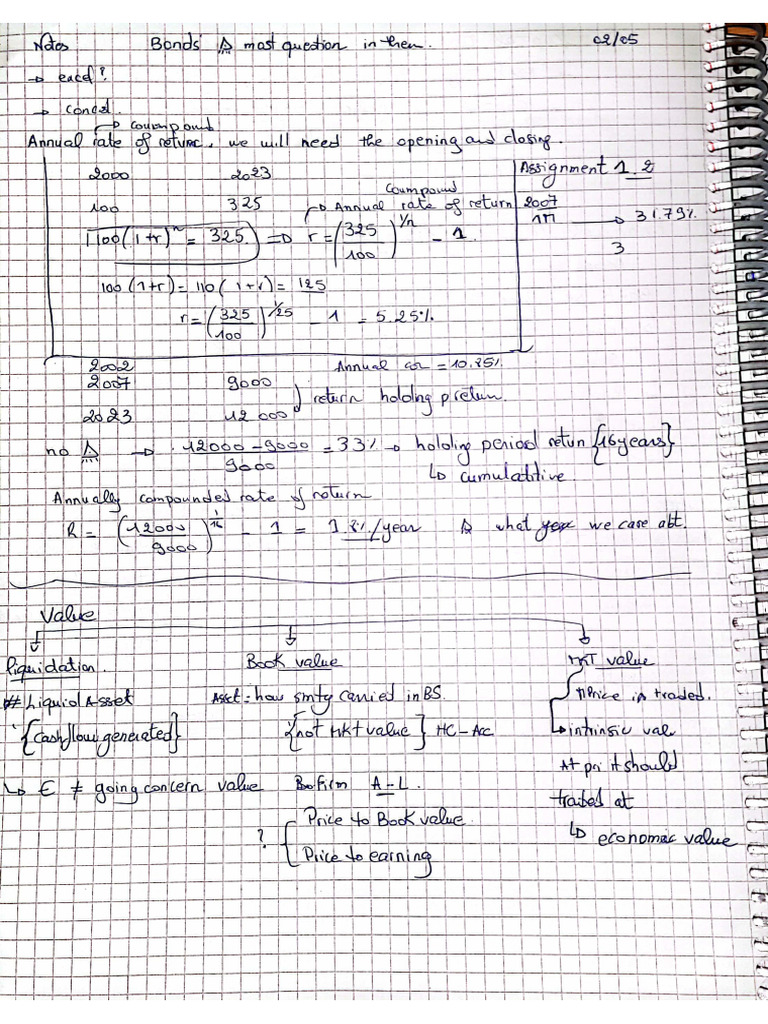 Notes Bonds Δ most question in then. 02/05
→ excel?
→ concel.
↳ coumpound
Annual rate of return, we will need the opening and closing.
2000 2023
100 325
Coumpound
↳ Annual rate of return
100(1+r)^n = 325 => r = (325/100)^1/n - 1.
100(1+r) = 110(1+r) = 125
r = (325/100)^1/25 - 1 = 5.25%
Assignment 1.2
2007
→ 31.79%
3
2002 Annual = 10.85%
2007 9000
return holding
2023 12 000
no Δ → 12000-9000/9000 = 33% → holding period retun {16years}
↳ cumulatitive
Annually compounded rate of return
R = (12000/9000)^1/16 - 1 = 1.8%/year Δ what we case abt.
Value
Liquidation. Book value MKT value
# Liquid Asset Asset = how smtg carried in BS. Price is traded.
{cashflow generated} {not Mkt value} HC-Acc ↳ intrinsic val
↳ € ≠ going concern value B of firm A-L.
At pri it should
traded at
↳ economic value
? { Price to Book value
Price to earning